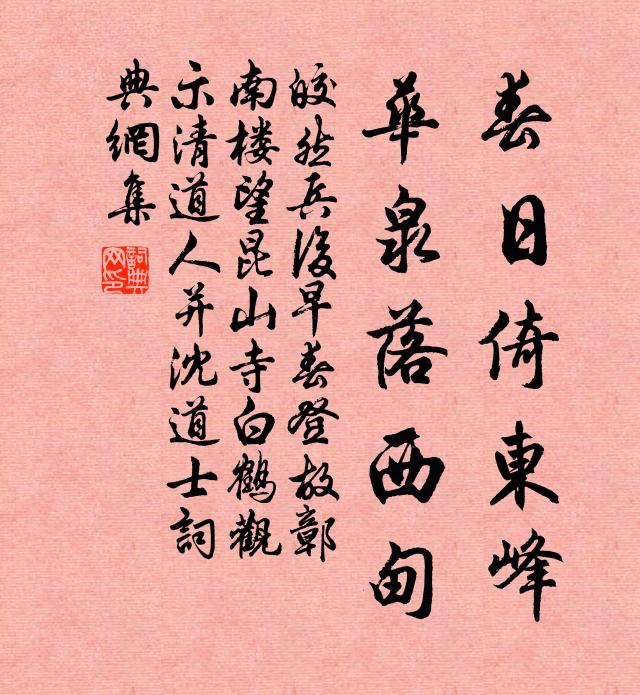 春日倚東峰
華泉落西甸
皎然兵後早春登故鄣
南楼望昆山寺白鶴觀
示清道人并沈道士詞
典網集
詞典
网印